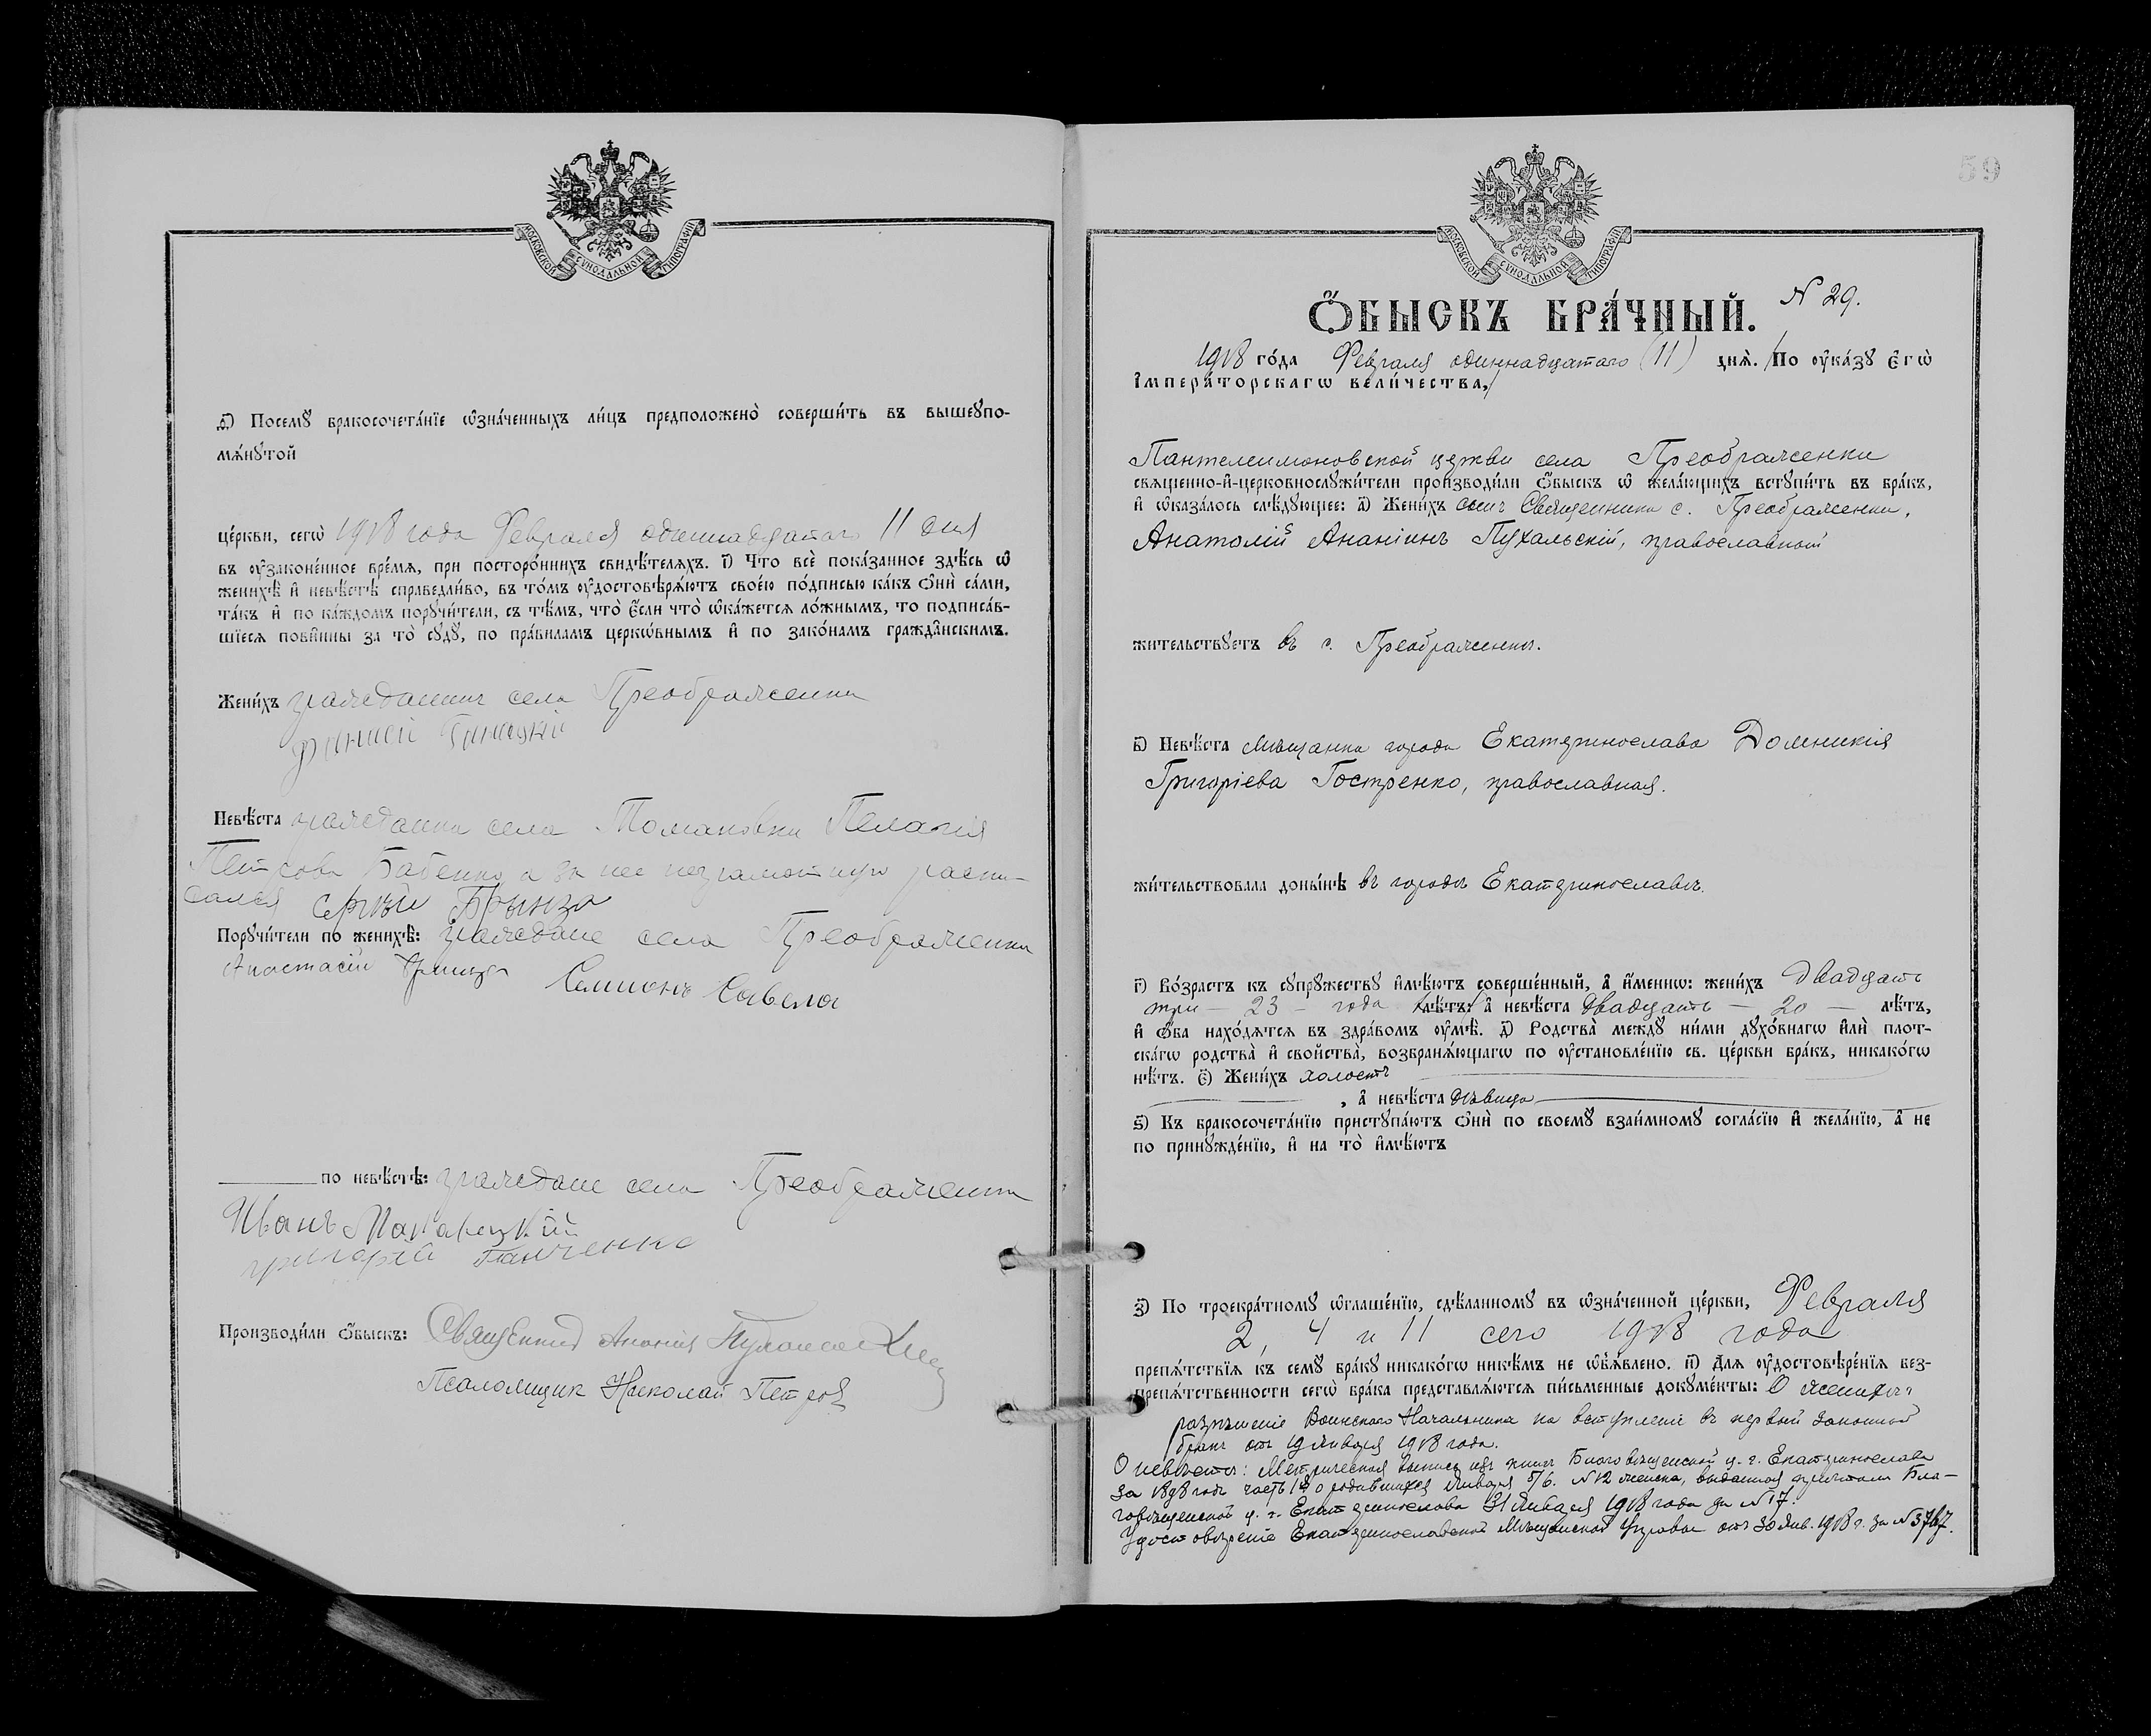 МОСКОВСКОЙ СѴНОДАЛЬНОЙ ТИПОГРАФІИ
д҃) Посемꙋ бракосочета́нїе ѡ҆зна́ченныхъ ли́цъ предположено̀ соверши́ть въ вышеꙋпо-
мѧ́нꙋтой
це́ркви, сегѡ̀ 1918 года Февраля одиннадцатаго 11 дня
въ ᲂу҆законе́нное вре́мѧ, при посторо́ннихъ свидѣ́телѧхъ. і҃) Что всѐ пока́занное здѣ́сь ѡ҆
женихѣ̀ и҆ невѣ́стѣ справедли́во, въ то́мъ ᲂу҆достовѣрѧ́ютъ свое́ю по́дписью ка́къ ѻ҆нѝ са́ми,
та́къ и҆ по ка́ждомъ порꙋчи́тели, съ тѣ́мъ, что̀ є҆́сли что̀ ѡ҆ка́жетсѧ ло́жнымъ, то подписа́в-
шїесѧ пови́нны за то̀ сꙋдꙋ̀, по пра́виламъ церко́внымъ и҆ по зако́намъ гражда́нскимъ.
Жени́хъ гражданинъ села Преображенки
Невѣ́ста гражданка села Томаковки Пелагія
Петрова Бабенко, а за нее неграмотную распи-
сался Сергѣй Брынза
Порꙋчи́тели по женихѣ̀: граждане села Преображенки
Анастасій Брынза Семионъ Савела
по невѣ́стѣ: граждане села Преображенки
Иванъ
григорій Панченко
Производи́ли ѻ҆́быскъ: Священник Ананія Пухальскій
Псаломщик Николай Петров
59
МОСКОВСКОЙ СѴНОДАЛЬНОЙ ТИПОГРАФІИ
Ѻ҆́БЫСКЪ БРА́ЧНЫЙ. N 29.
1918 го́да Февраля одиннадцатаго (11) днѧ̀. По ᲂу҆ка́зꙋ є҆гѡ̀
і҆мпера́торскагѡ вели́чества,
Пантелеимоновской церкви села Преображенки
свѧще́нно-и҆-церковнослꙋжи́тели производи́ли ѻ҆́быскъ ѡ҆ жела́ющихъ встꙋпи́ть въ бра́къ,
и҆ ѡ҆каза́лось слѣ́дꙋющее: а҃) Жени́хъ сынъ Священника с. Преображенки,
Анатолій Ананіинъ Пухальскій, православный
жи́тельствꙋетъ въ с. Преображенкѣ.
в҃) Невѣ́ста мѣщанка города Екатеринослава Домникія
Григоріева Гостренко, православная.
жи́тельствовала доны́нѣ въ городѣ Екатеринославѣ.
г҃) Во́зрастъ къ сꙋпрꙋ́жествꙋ и҆мѣ́ютъ соверше́нный, а҆ и҆́меннѡ: жени́хъ двадцать
три — 23 — года лѣ́тъ, а҆ невѣ́ста двадцать — 20 — лѣ́тъ,
и҆ ѻ҆́ба нахо́дѧтсѧ въ здра́вомъ ᲂу҆мѣ̀. д҃) Родства̀ междꙋ ни́ми дꙋхо́внагѡ и҆лѝ плот-
ска́гѡ родства̀ и҆ сво́йства̀, возбранѧ́ющагѡ по ᲂу҆становле́нїю св. це́ркви бра́къ, никако́гѡ
нѣ́тъ. є҃) Жени́хъ холостъ
, а҆ невѣ́ста дѣвица
ѕ҃) Къ бракосочета́нїю пристꙋпа́ютъ ѻ҆нѝ по своемꙋ̀ взаи́мномꙋ согла́сїю и҆ жела́нїю, а҆ не
по принꙋжде́нїю, и҆ на то̀ и҆мѣ́ютъ
з҃) По троекра́тномꙋ ѡ҆глаше́нїю, сдѣ́ланномꙋ въ ѡ҆зна́ченной це́ркви, Февраля
2, 4 и 11 сего 1918 года
препѧ́тствїѧ къ семꙋ̀ бра́кꙋ никако́гѡ никѣ́мъ не ѡ҆б̾ѧ́влено. и҃) Длѧ ᲂу҆достовѣре́нїѧ без-
препѧ́тственности сегѡ̀ бра́ка представлѧ́ютсѧ пи́сьменные докꙋме́нты: О женихѣ:
разрѣшеніе Воинскаго Начальника на вступленіе въ первый законный
бракъ отъ 19 Января 1918 года.
О невѣстѣ: Метрическая выпись изъ книгъ Благовѣщенской ц. г. Екатеринослава
за 1898 годъ часть 1я о родившихся Января 5/6. N 12 женска, выданная причтом Бла-
говѣщенской ц. г. Екатеринослава 31 Января 1918 года за N 17.
Удостовѣреніе Екатеринославской Мѣщанской Управы отъ 30 Янв. 1918 г. за N 3767.